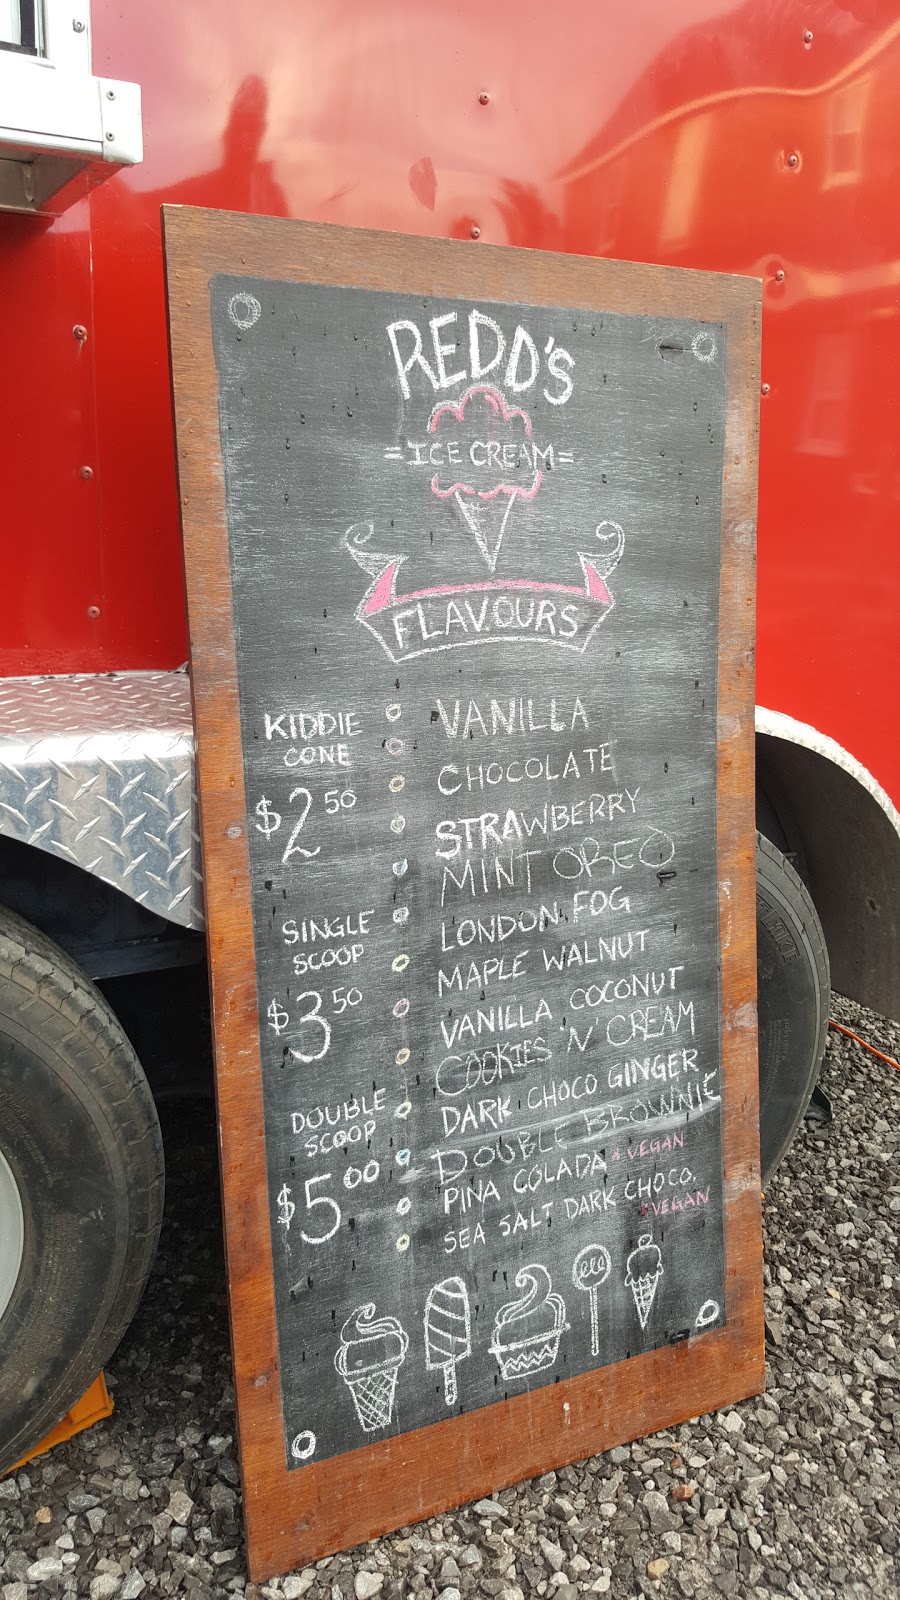 REDD'S
=ICE CREAM=
FLAVOURS
KIDDIE
CONE
$2.50
SINGLE
SCOOP
$3.50
DOUBLE
SCOOP
$5.00
VANILLA
CHOCOLATE
STRAWBERRY
MINT OREO
LONDON FOG
MAPLE WALNUT
VANILLA COCONUT
COOKIES 'N' CREAM
DARK CHOCO GINGER
DOUBLE BROWNIE
PINA COLADA * VEGAN
SEA SALT DARK CHOCO.
*VEGAN